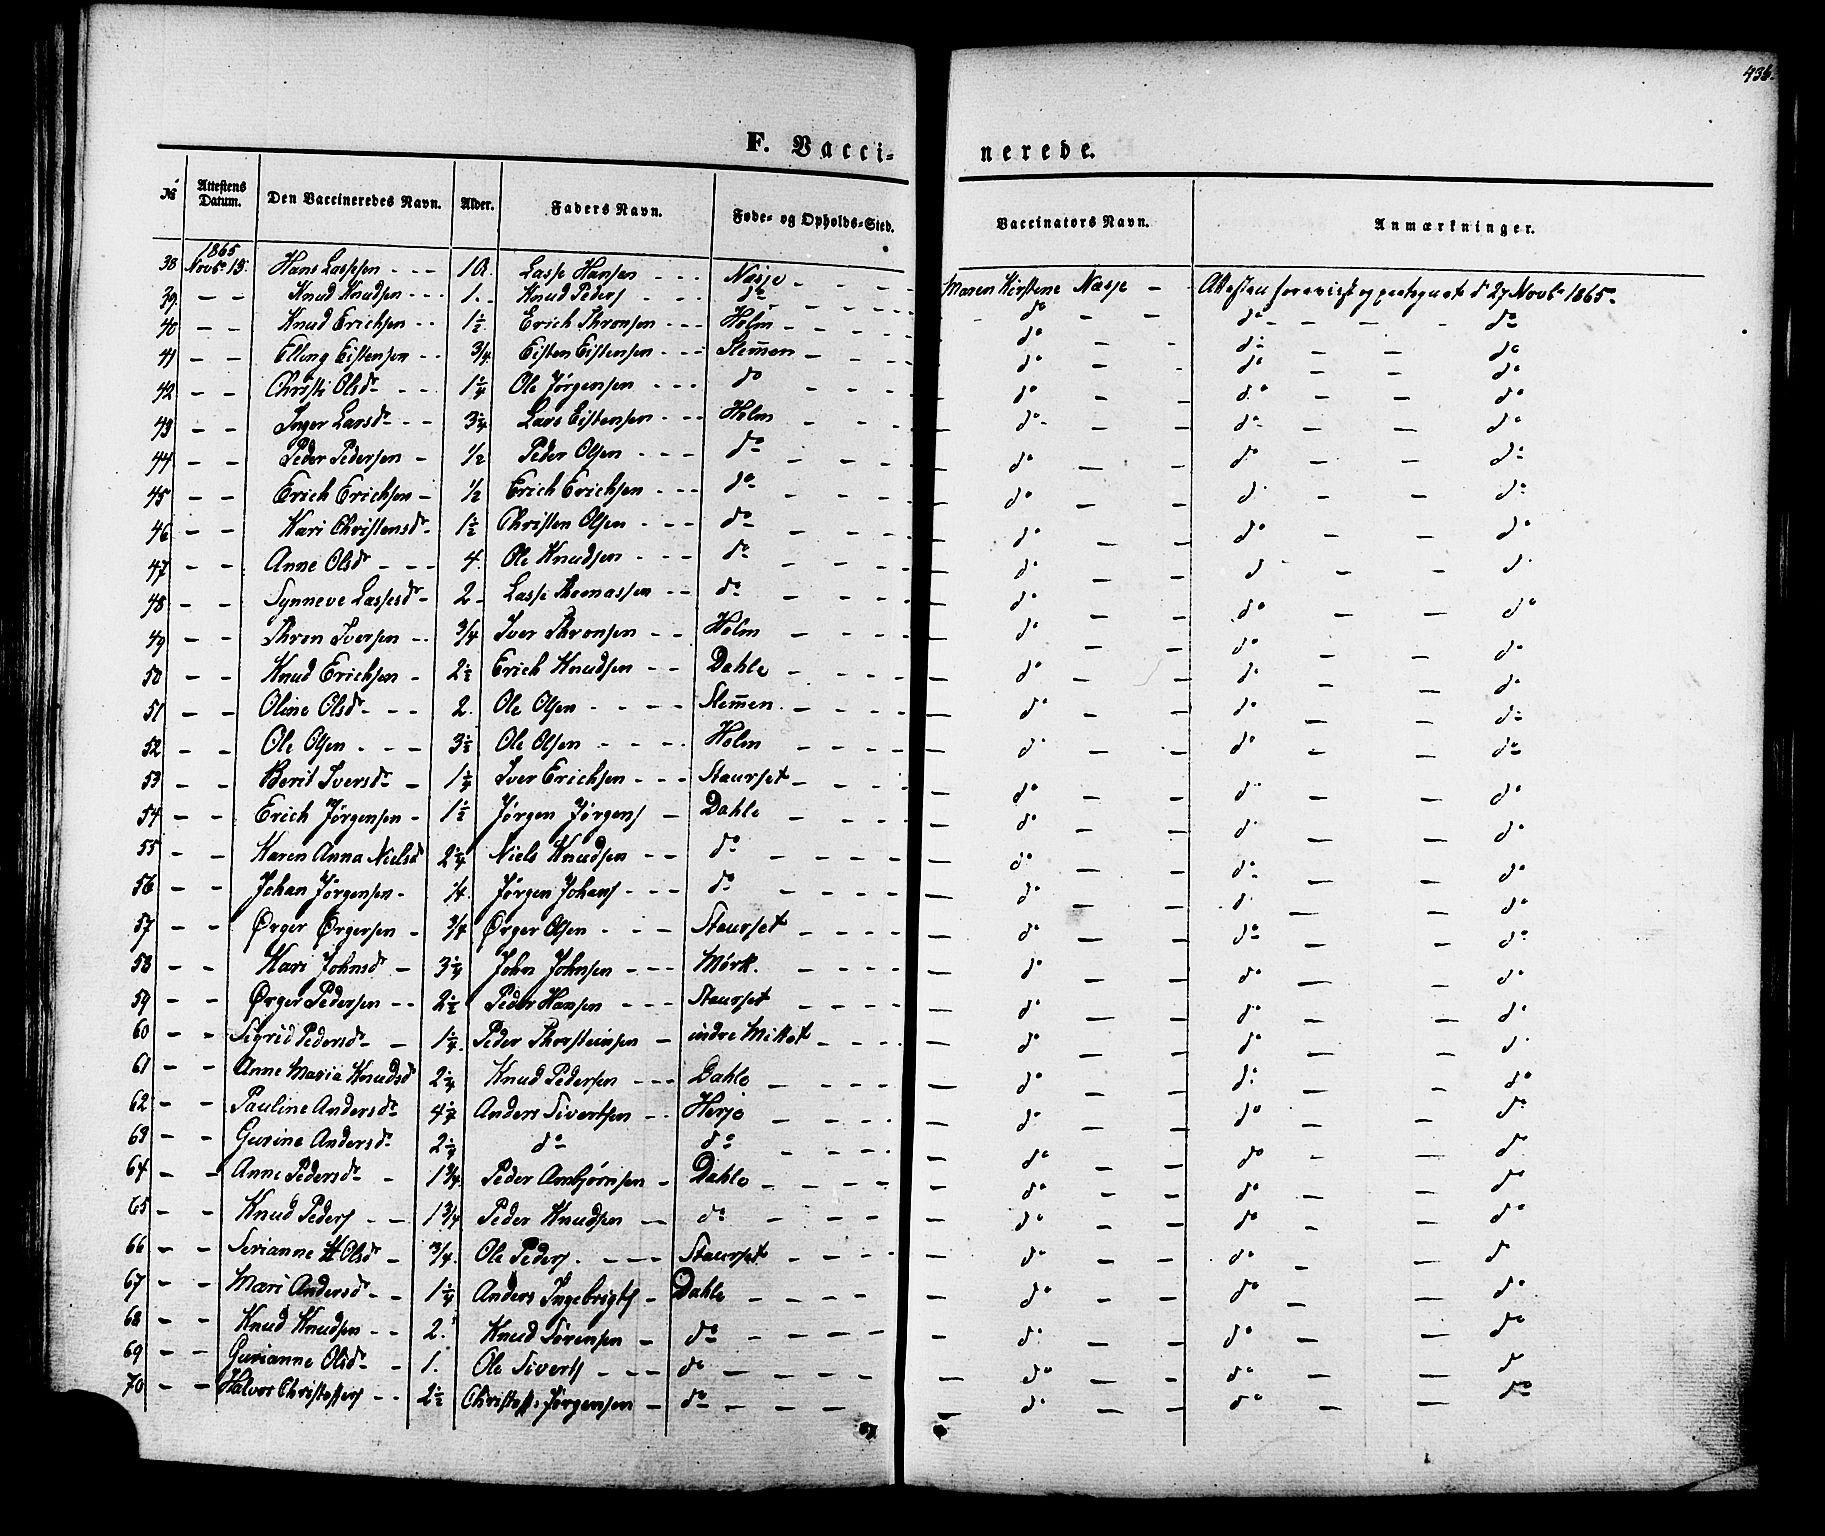 436.
F. Vacci- nerede.
№ Attestens Datum. Den Vaccineredes Navn. Alder. Faders Navn. Føde- og Opholds-Sted. Vaccinators Navn. Anmærkninger.
1865
38 Novbr 13. Hans Lassesen - - - 10. Lasse Hansen - - Næsje - - - - Maren Kirstine Næsje - Attesten forevist og paategnet d 27 Novbr 1865.
39. - - Knud Knudsen - - - 1. - Knud Peders - - - do - - - - do - - do - - - - do
40 - - Knud Erichsen - - 1½ Erich Thronsen - - - Holm - - - - do - - do - - do
41 - - Elling Eistensen - - 3/4. Eisten Eistensen - - - Slem̄en - - - - do - - do - - do
42 - - Christi Olsdr - - 1¼ Ole Jørgensen - - - do - - - - do - - do - - do
43 - - Inger Larsdr - - 3¼ Lars Eistensen - - - Holm - - - - do - - do - - do
44 - - Peder Pedersen - ½ Peder Olsen - - - do - - - - do - - do - - do
45 - - Erich Erichsen - ½ Erich Erichsen - - - do - - - - do - - do - - do
46 - - Kari Christensdr - 1½ Christen Olsen - - - do - - - - do - - do - - do
47 - - Anne Olsdr - - - 4. Ole Knudsen - - - do - - - - do - - do - - do
48 - - Synneve Lassesdr - 2 - Lasse Thomassen - - do - - - - do - - do - - do
49 - - Thron Iversen - - 3/4 Iver Thronsen - - Holm - - - - do - - do - - do
50 - - Knud Erichsen - 2½ Erich Knudsen - - Dahle - - - - do - - do - - do
51 - - Oline Olsdr - - - 2. Ole Olsen - - - - Slem̄en. - - - - do - - do - - do
52 - - Ole Olsen - - - 3½ Ole Olsen - - - - Holm - - - - do - - do - - do
53 - - Berit Iversdr - 1¼ Iver Erichsen - - - Staurset - - - - do - - do - - do
54 - - Erich Jørgensen - 1½ Jørgen Jørgens - Dahle - - - - do - - do - - do
55 - - Karen Anna Nielsd 2¼ Niels Knudsen - - do - - - - do - - do - - do
56 - - Johan Jørgensen - ¼. Jørgen Johans - - - do - - - - do - - do - - do
57 - - Ørger Ørgersen - 3/4 Ørger Olsen - - - Staurset - - - - do - - do - - do
58 - - Kari Johnsdr - 3¼ John Johnsen - - - Mørk. - - - - do - - do - - do
59 - - Ørger Pedersen - - 2½ Peder Hansen - - - Staurset - - - - do - - do - - do
60 - - Sigrid Pedersdr - 1¼. Peder Thorsteinsen - indre Mittet - - - - do - - do - - do
61 - - Anne Maria Knudsd 2¼ Knud Pedersen - - - Dahle - - - - do - - do - - do
62 - - Pauline Andersdr 4½ Anders Sivertsen - - Herje - - - - do - - do - - do
63 - - Gurine Andersdr 2¼ do do - - - - do - - do - - do
64 - - Anne Pedersdr - 1 3/4. Peder Arnbjørnsen - Dahle - - - - do - - do - - do
65 - - Knud Peders - - 1 3/4 Peder Knudsen - - do - - - - do - - do - - do
66 - - Serianne Olsdr - 3/4. Ole Peders. - - - Staurset - - - - do - - do - - do
67 - - Mari Andersd - - 1¼ Anders Ingebrigts - Dahle - - - - do - - do - - do
68 - - Knud Knudsen - - 2. Knud Sørensen - do - - - - do - - do - - do
69 - - Gurianne Olsdr - 1. Ole Siverts - - - do - - - - do - - do - - do
70 - - Halvor Christoffers - - 2½ Christoff. Jørgensen - do - - - - do - - do - - do